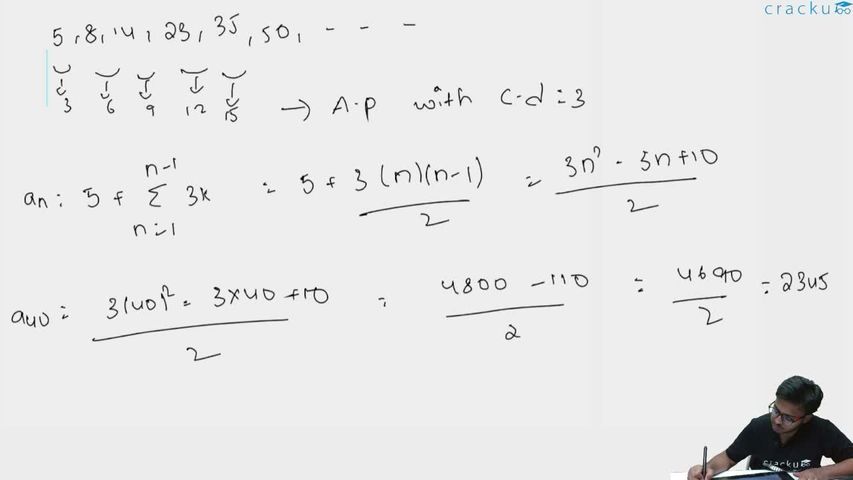 cracku
5, 8, 14, 23, 35, 50, - - -
3 6 9 12 15 → A.P with c.d = 3
an = 5 + Σ 3k = 5 + 3(n)(n-1)/2 = 3n² - 3n + 10/2
n-1
n=1
a40 = 3(40)² - 3x40 + 10/2 = 4800 - 110/2 = 4690/2 = 2345
cracku